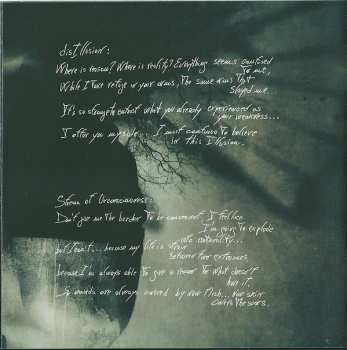 disIllusion:
Where is reason? Where is reality? Everything seems confused
To me,
While I take refuge in your arms, The same arms That
slayed me.
It's so strange to entrust what you already experienced as
your weakness...
I offer you myself... I must continue To believe
in this Illusion.
Stream of Unconsciousness:
Don't give me the burden To be convenient, I feel like
I'm going to explode
into naturality...
but I can't... because my life is
between Two extremes,
because I'm always able To give a reason To what doesn't
have it.
So wounds are always covered by new flesh... New skin